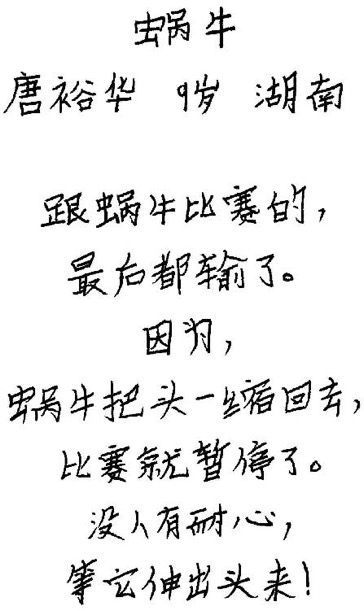 蜗牛
唐裕华 9岁 湖南
跟蜗牛比赛的，
最后都输了。
因为，
蜗牛把头一缩回去，
比赛就暂停了。
没人有耐心，
等它伸出头来！